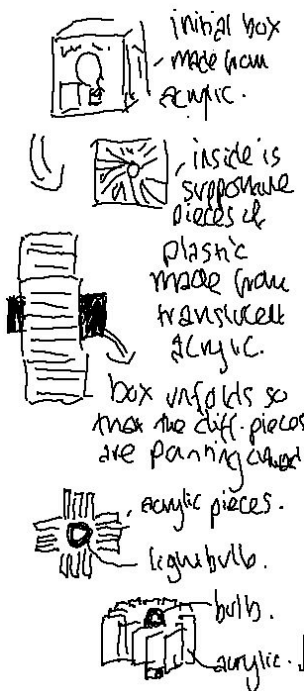 initial box
made from
acrylic.
inside is
supportive
pieces of
plastic
made from
translucent
acrylic.
box unfolds so
that the diff. pieces
are pointing
acrylic pieces.
lightbulb.
bulb.
acrylic.